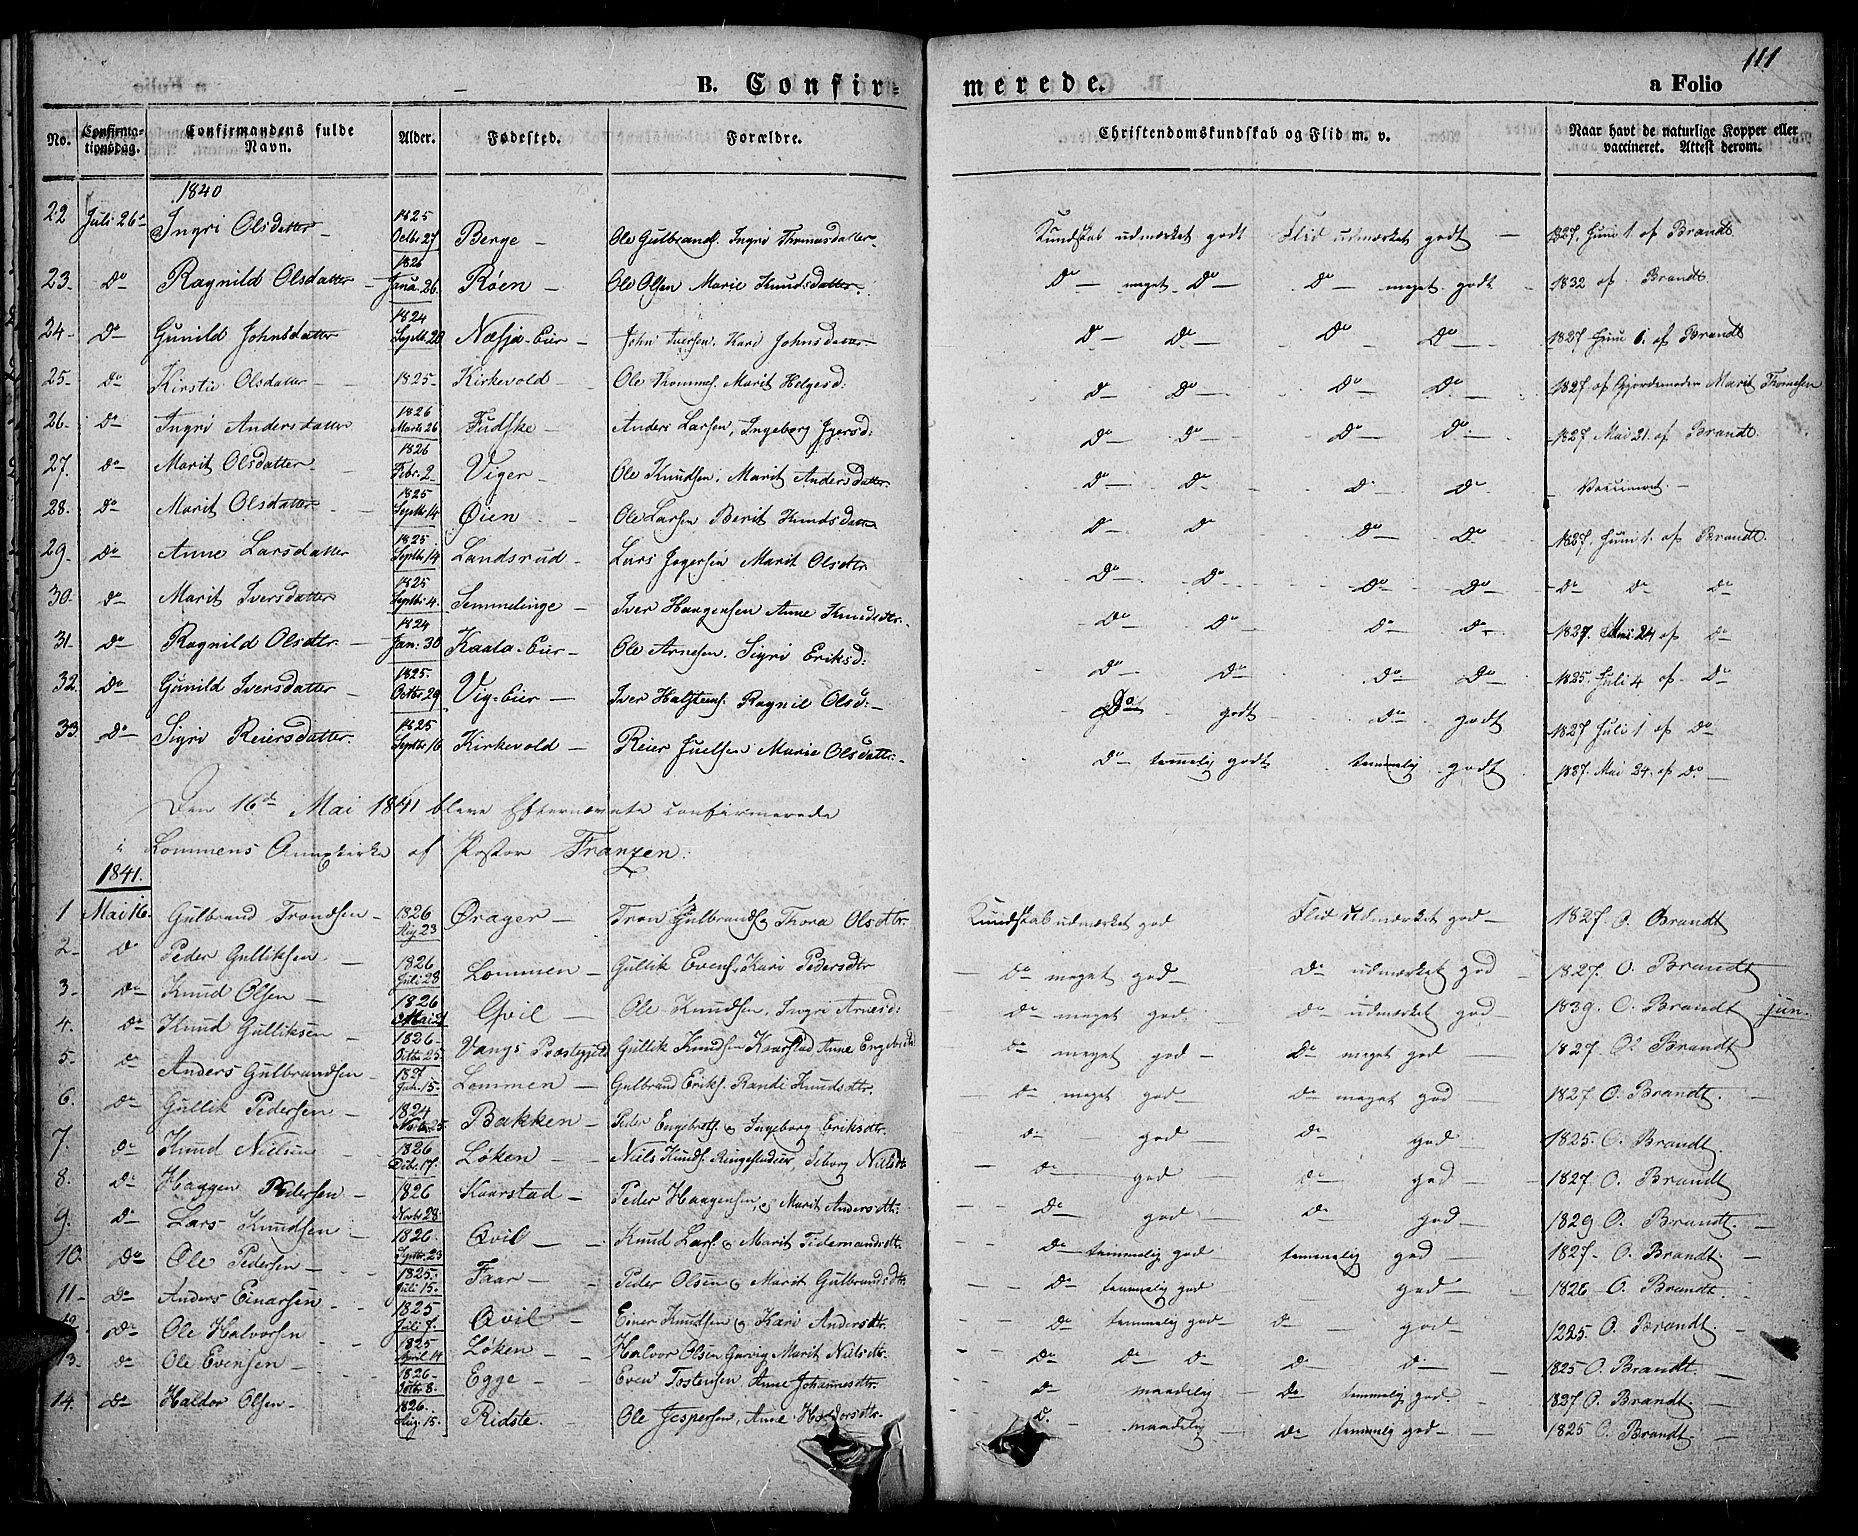 111
B. Confirmerede.
a Folio
No. Confirmationsdag. Confirmandens fulde Navn. Alder. Fødested. Forældre. Christendomskundskab og Flid m. v. Naar havt de naturlige Kopper eller vaccineret. Attest derom.
1840
22 Juli 26 Ingri Olsdatter 1825 Octbr 27 Berge Ole Gulbrands. Ingri Thomasdatter Kundskab udmærket godt Flid udmærket godt 1827 Juni 1. af Brandt
23. Do Ragnild Olsdatter 1826 Janu. 26. Røen Ole Olsen Marie Knudsdatter Do meget Do Do meget godt 1832 af Brandt
24 Do Gunild Johnsdatter 1824 Septbr. 20 Næsja-Eier John Iversen. Kari Johnsdatter Do Do Do Do 1827 Juni 1. af Brandt
25. Do Kirstie Olsdatter 1825 Kirkevold Ole Thommes. Marit Helgesd: Do Do Do Do 1827. af Gjordemoder Marit Thomesen
26. Do Ingri Andersdatter 1826 Marts 26 Fudske Anders Larsen, Ingeborg Do Do Do Do 1827 Mai 21. af Brandt.
27. Do Marit Olsdatter 1826 Febr. 2 Viger Ole Knudsen, Marit Andersdatter Do Do Do Do Vaccineret.
28. Do Marit Olsdatter 1825 Septbr 14 Øien Ole Larsen Berit Knudsdatter Do Do Do Do 1827. Juni 1. af Brandt.
29. Do Anne Larsdatter 1825 Septbr 14 Landsrud Lars Marit Olsdtr Do Do Do Do Do Do Do
30. Do Marit Iversdatter 1825 Septbr 4. Semmelinge Iver Haagensen Anne Knudsdtr. Do Do Do Do 1827. Mai 24 af Do
31. Do Ragnild Olsdtr. 1824 Jan: 30 Kaala-Eier Ole Arnesen. Sigri Eriksd: Do Do Do Do 1825. Juli 4 af Do
32. Do Gunild Iversdatter 1825. Octbr 29 Vig-Eier Iver Halstens. Ragnil Olsd: Do godt Do godt 1827 Juli 1 af Do
33. Do Sigri Reiersdatter. 1825 Septbr 16 Kirkevold Reier Juelsen Marie Olsdatter. Do temmelig godt temmelig godt 1827. Mai 24. af Do
Den 16de Mai 1841 bleve Efternævnte confirmerede
i Lommens Annexkirke af Pastor Franzen.
1841.
1 Mai 16. Gulbrand Trondsen 1826 Aug 23 Qrager Tron Gulbrands. Thora Olsdtr. Kundskab udmærket god Flid udmærket god 1827. O. Brandt
2. Do Peder Gulliksen 1826 Juli 28 Lommen Gullik Evens. Kari Pedersdtr Do meget god Do udmærket god 1827. O. Brandt
3. Do Knud Olsen 1826 Mai Qvil Ole Knudsen, Ingri Arnesd: Do meget god Do udmærket god 1839. O. Brandt jun.
4. Do Knud Gulliksen 1826 Octbr 25. Vangs Præstegjeld Gullik Knudsen Kaarstad Anne Do meget god Do meget god 1827. O. Brandt
5. Do Anders Gulbrandsen 1827 Jan. 15. Lommen Gulbrand Eriks. Randi Knudsdtr. Do meget god Do meget god 1827. O. Brandt.
6. Do Gullik Pedersen 1824 Novb. 25 Bakken Peder Engebrets. Ingeborg Eriksdtr. Do god Do god 1825. O. Brandt.
7. Do Knud Nielsen 1826 Dcb. 17. Løken Niels Knuds. Ringestadeier, Siborg Nielsd Do god Do god 1827 O. Brandt
8. Do Haagen Pedersen 1826 Novbr 28 Kaarstad Peder Haagensen, Marit Andersdtr. Do god Do god 1829 O. Brandt
9. Do Lars Knudsen 1826. Septbr. 23 Qvil Knud Lars. Marit Tidemandsdtr. Do temmelig god temmelig god 1827. O. Brandt
10. Do Ole Pedersen 1825. Juli 15. Faar Peder Olsen Marit Gulbrandsdtr Do temmelig god god 1826 O. Brandt.
11 Do Anders Einarsen 1825 Juli 7. Qvil Einer Knudsen Kari Andersdtr. Do temmelig god Do god 1225. O. Brandt.
12 Do Ole Halvorsen 1825 April 14 Løken Halvor Olsen Marit Nielsdtr. Do Do Do Do Do 1825 O. Brandt.
13. Do Ole Evensen 1826 8. Egge Even Tostensen Anne Johannesdtr. Do maadelig Do temmelig god. 1827 O. Brandt.
14. Do Haldor Olsen 1826. Aug. 15. Ridste. Ole Jespersen, Anne Haldorsdtr Do maadelig Do temmelig god 1825 O. Brandt.